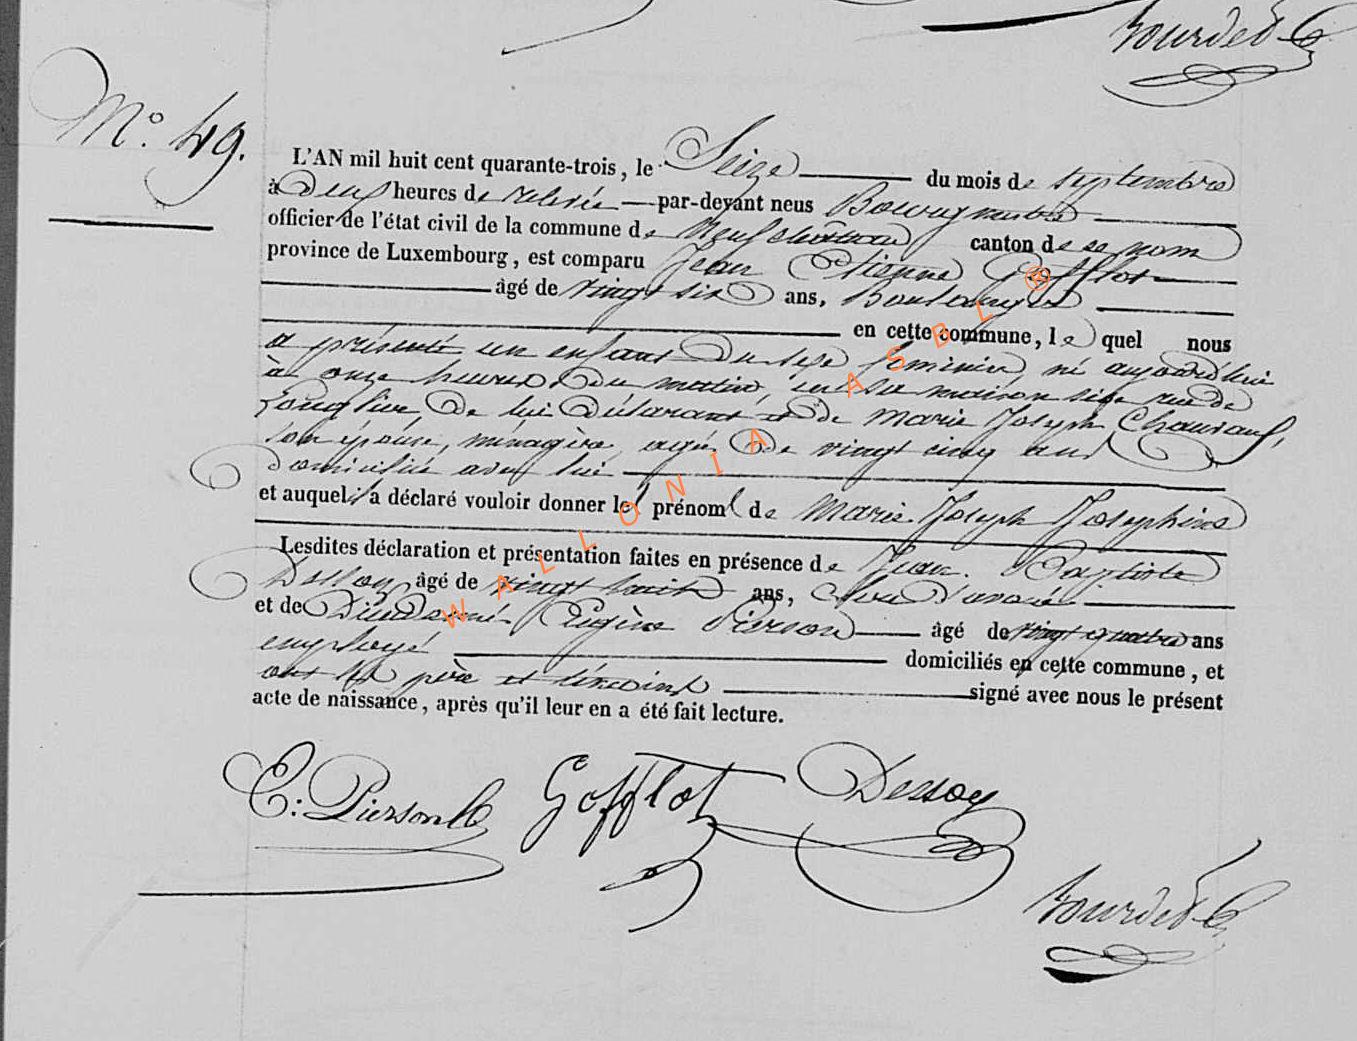 N° 49.
L'AN mil huit cent quarante-trois, le Seize du mois de septembre
à Deux heures de relevée par-devant nous Bourgmestre
officier de l'état civil de la commune de Neufchâteau canton de ce nom
province de Luxembourg, est comparu Jean Etienne Gofflot
âgé de vingt six ans, Boulanger
en cette commune, le quel nous
a présenté un enfant Du sexe feminin né aujourd'hui
à onze heures Du matin, en sa maison sise rue de
De lui Déclarant et De Marie Joseph
son épouse, ménagère, agée De vingt cinq ans
Domiciliée avec lui
et auquel il a déclaré vouloir donner le prénom de Marie Joseph Josephine
Lesdites déclaration et présentation faites en présence de Jean Baptiste
Dessoy âgé de vingt huit ans,
et de Dieudonné Eugène Pierson âgé de vingt quatre ans
employé domiciliés en cette commune, et
ont les père et témoins signé avec nous le présent
acte de naissance, après qu'il leur en a été fait lecture.
E. Pierson Gofflot Dessoy
WALLONIA ASBL ®